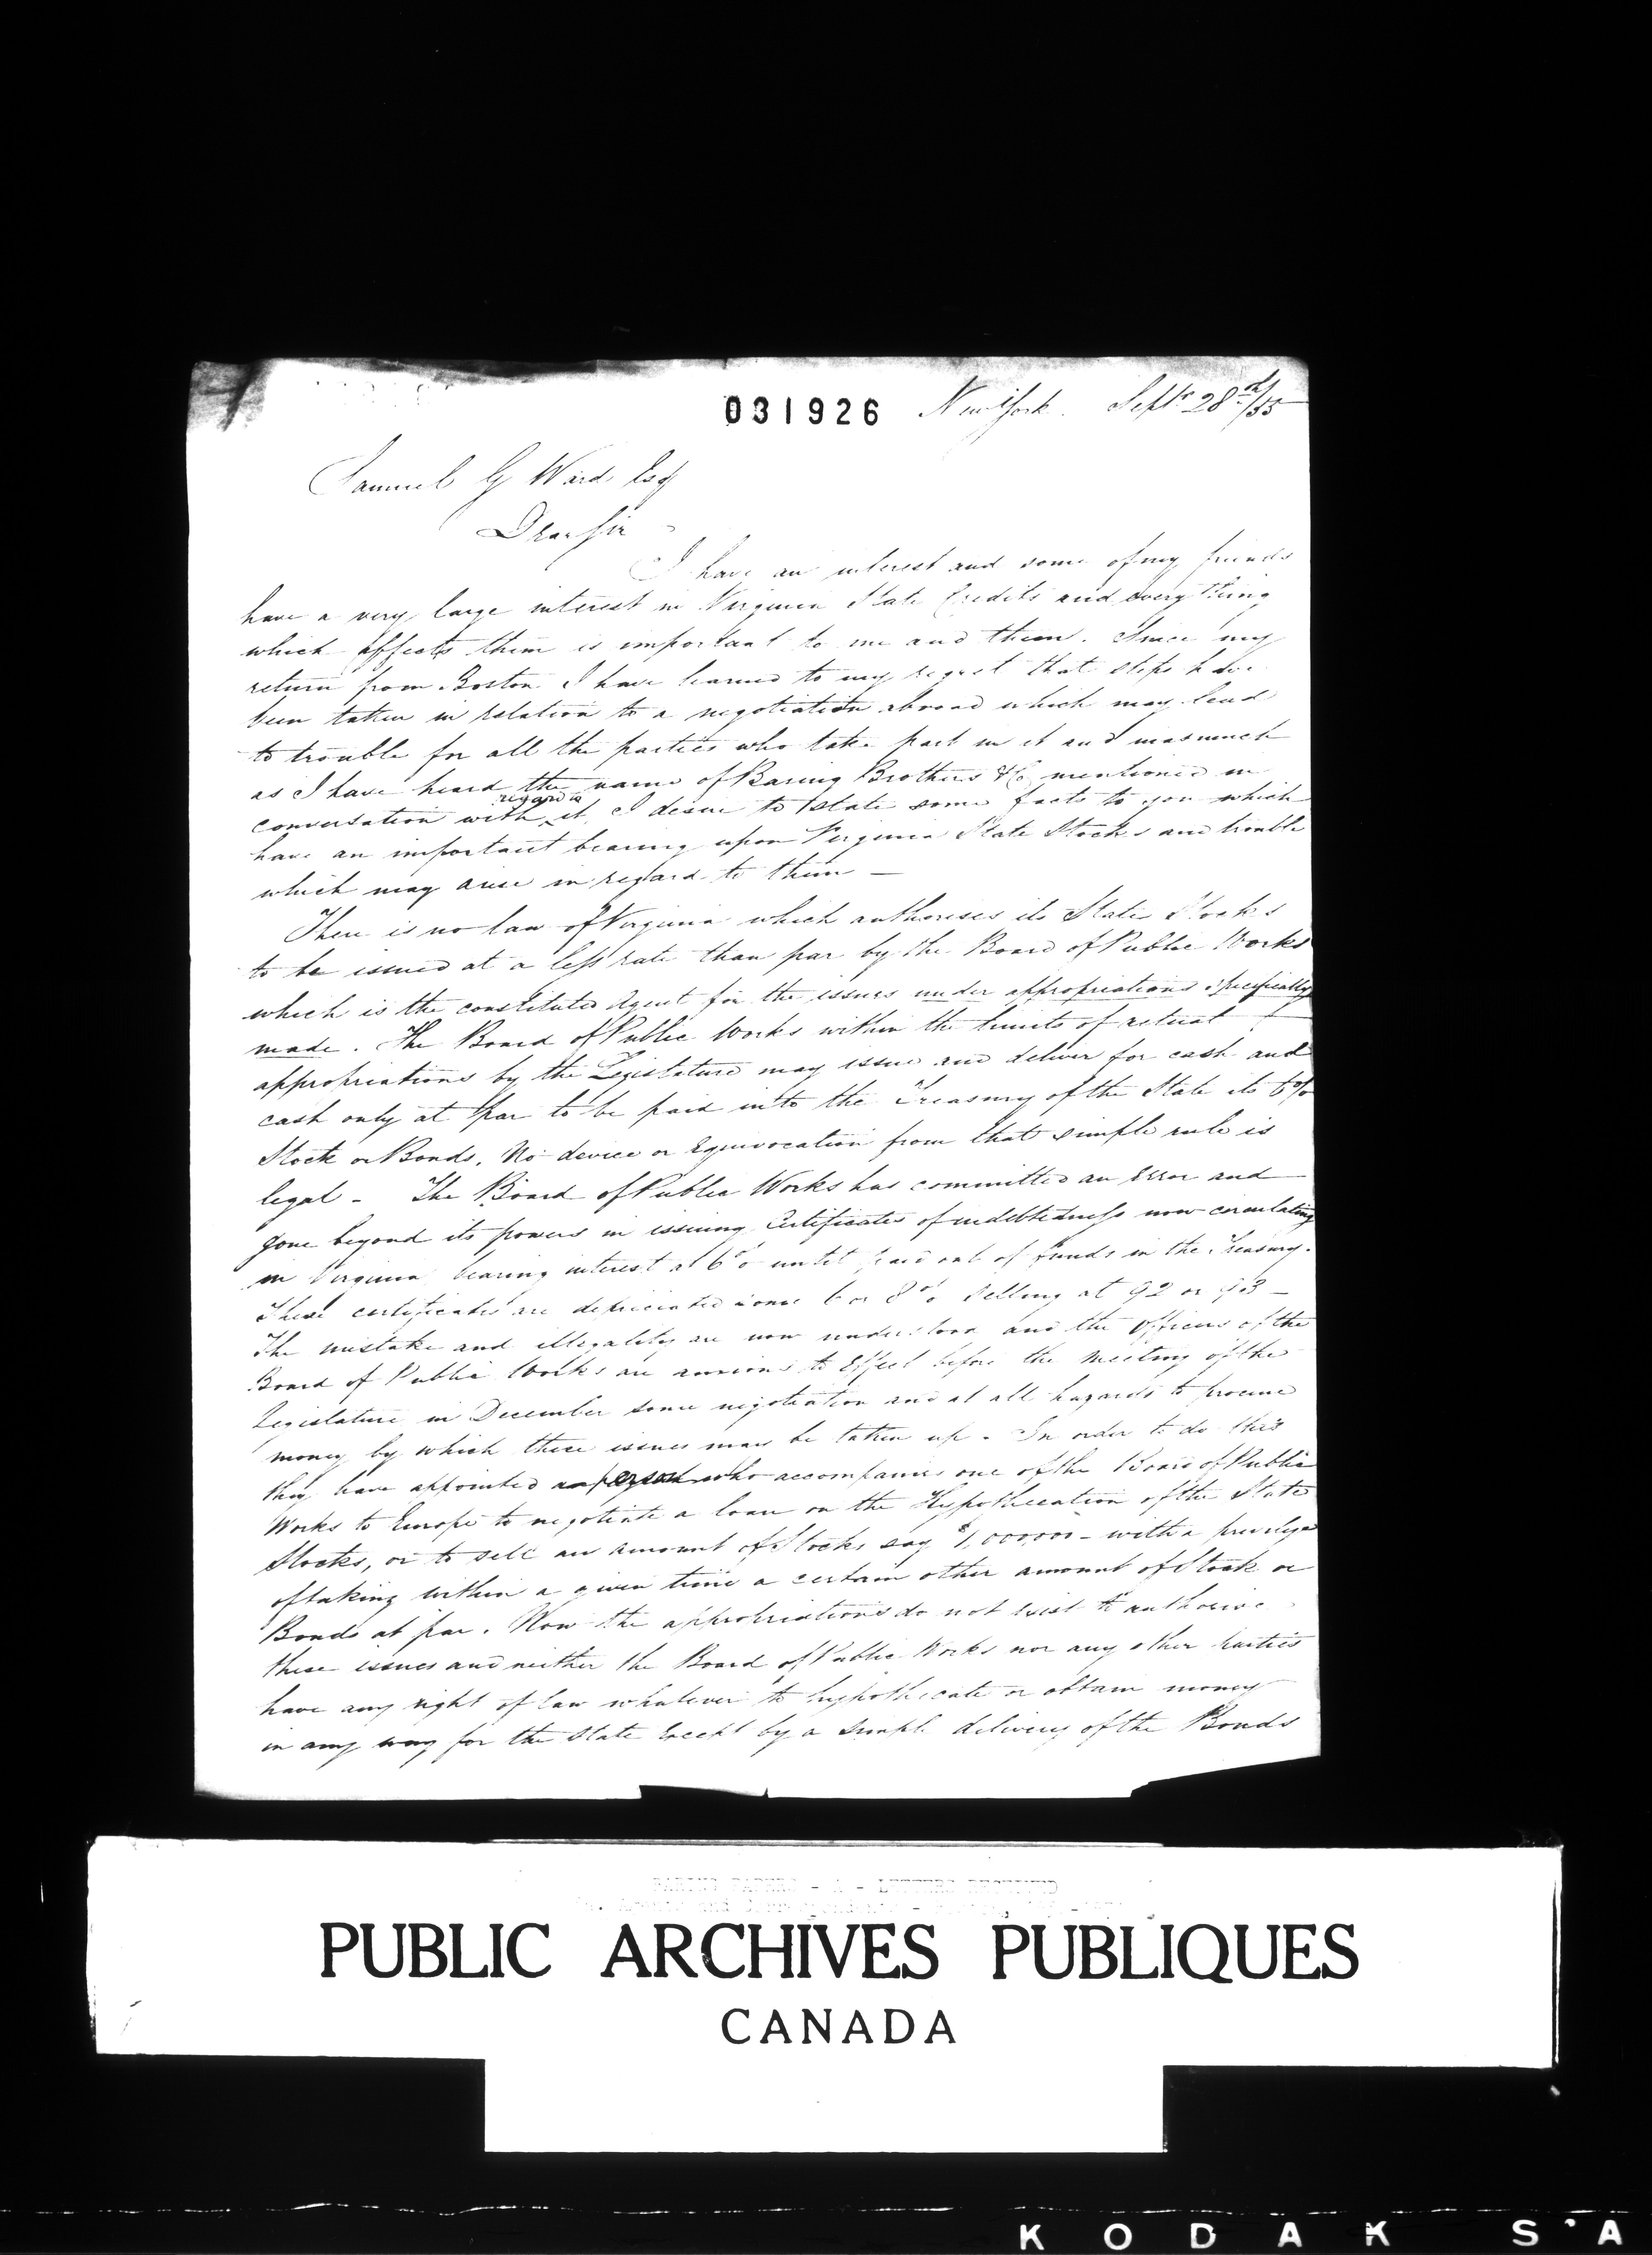 031926 New York. Septr 28th/55
Samuel G Ward Esq
Dear Sir
I have an interest and some of my friends
have a very large interest in Virginia State Credits and every thing
which affects them is important to me and them. Since my
return from Boston I have learned to my regret that steps have
been taken in relation to a negotiation abroad which may lead
to trouble for all the parties who take part in it and inasmuch
as I have heard the name of Baring Brothers & Co mentioned in
conversation with regard to it, I desire to state some facts to you which
have an important bearing upon Virginia State Stocks and trouble
which may arise in regard to them —
There is no law of Virginia which authorises its State Stocks
to be issued at a less rate than par by the Board of Public Works
which is the constituted Agent for the issues under appropriations specifically
made. The Board of Public Works within the limits of actual
appropriations by the Legislature may issue and deliver for cash and
cash only at par to be paid into the Treasury of the State its 6%
Stock or Bonds. No device or equivocation from that simple rule is
legal - The Board of Public Works has committed an error and
gone beyond its powers in issuing Certificates of indebtedness now circulating
in Virginia bearing interest at 6% until paid out of funds in the Treasury.
These certificates are depreciated some 6 or 8% selling at 92 or 93 —
The mistake and illegality are now understood and the Officers of the
Board of Public Works are anxious to effect before the meeting of the
Legislature in December some negotiation and at all hazards to procure
money by which these issues may be taken up - In order to do this
they have appointed a person who accompanies one of the Board of Public
Works to Europe to negotiate a loan on the Hypothecation of the State
Stocks, or to sell an amount of Stocks say $1,000,000 - with a privilege
of taking within a given time a certain other amount of Stock or
Bonds at par. Now the appropriations do not exist to authorise
these issues and neither the Board of Public Works nor any other parties
have any right of law whatever to hypothecate or obtain money
in any way for the State except by a simple delivery of the Bonds
PUBLIC ARCHIVES PUBLIQUES
CANADA
KODAK S'A